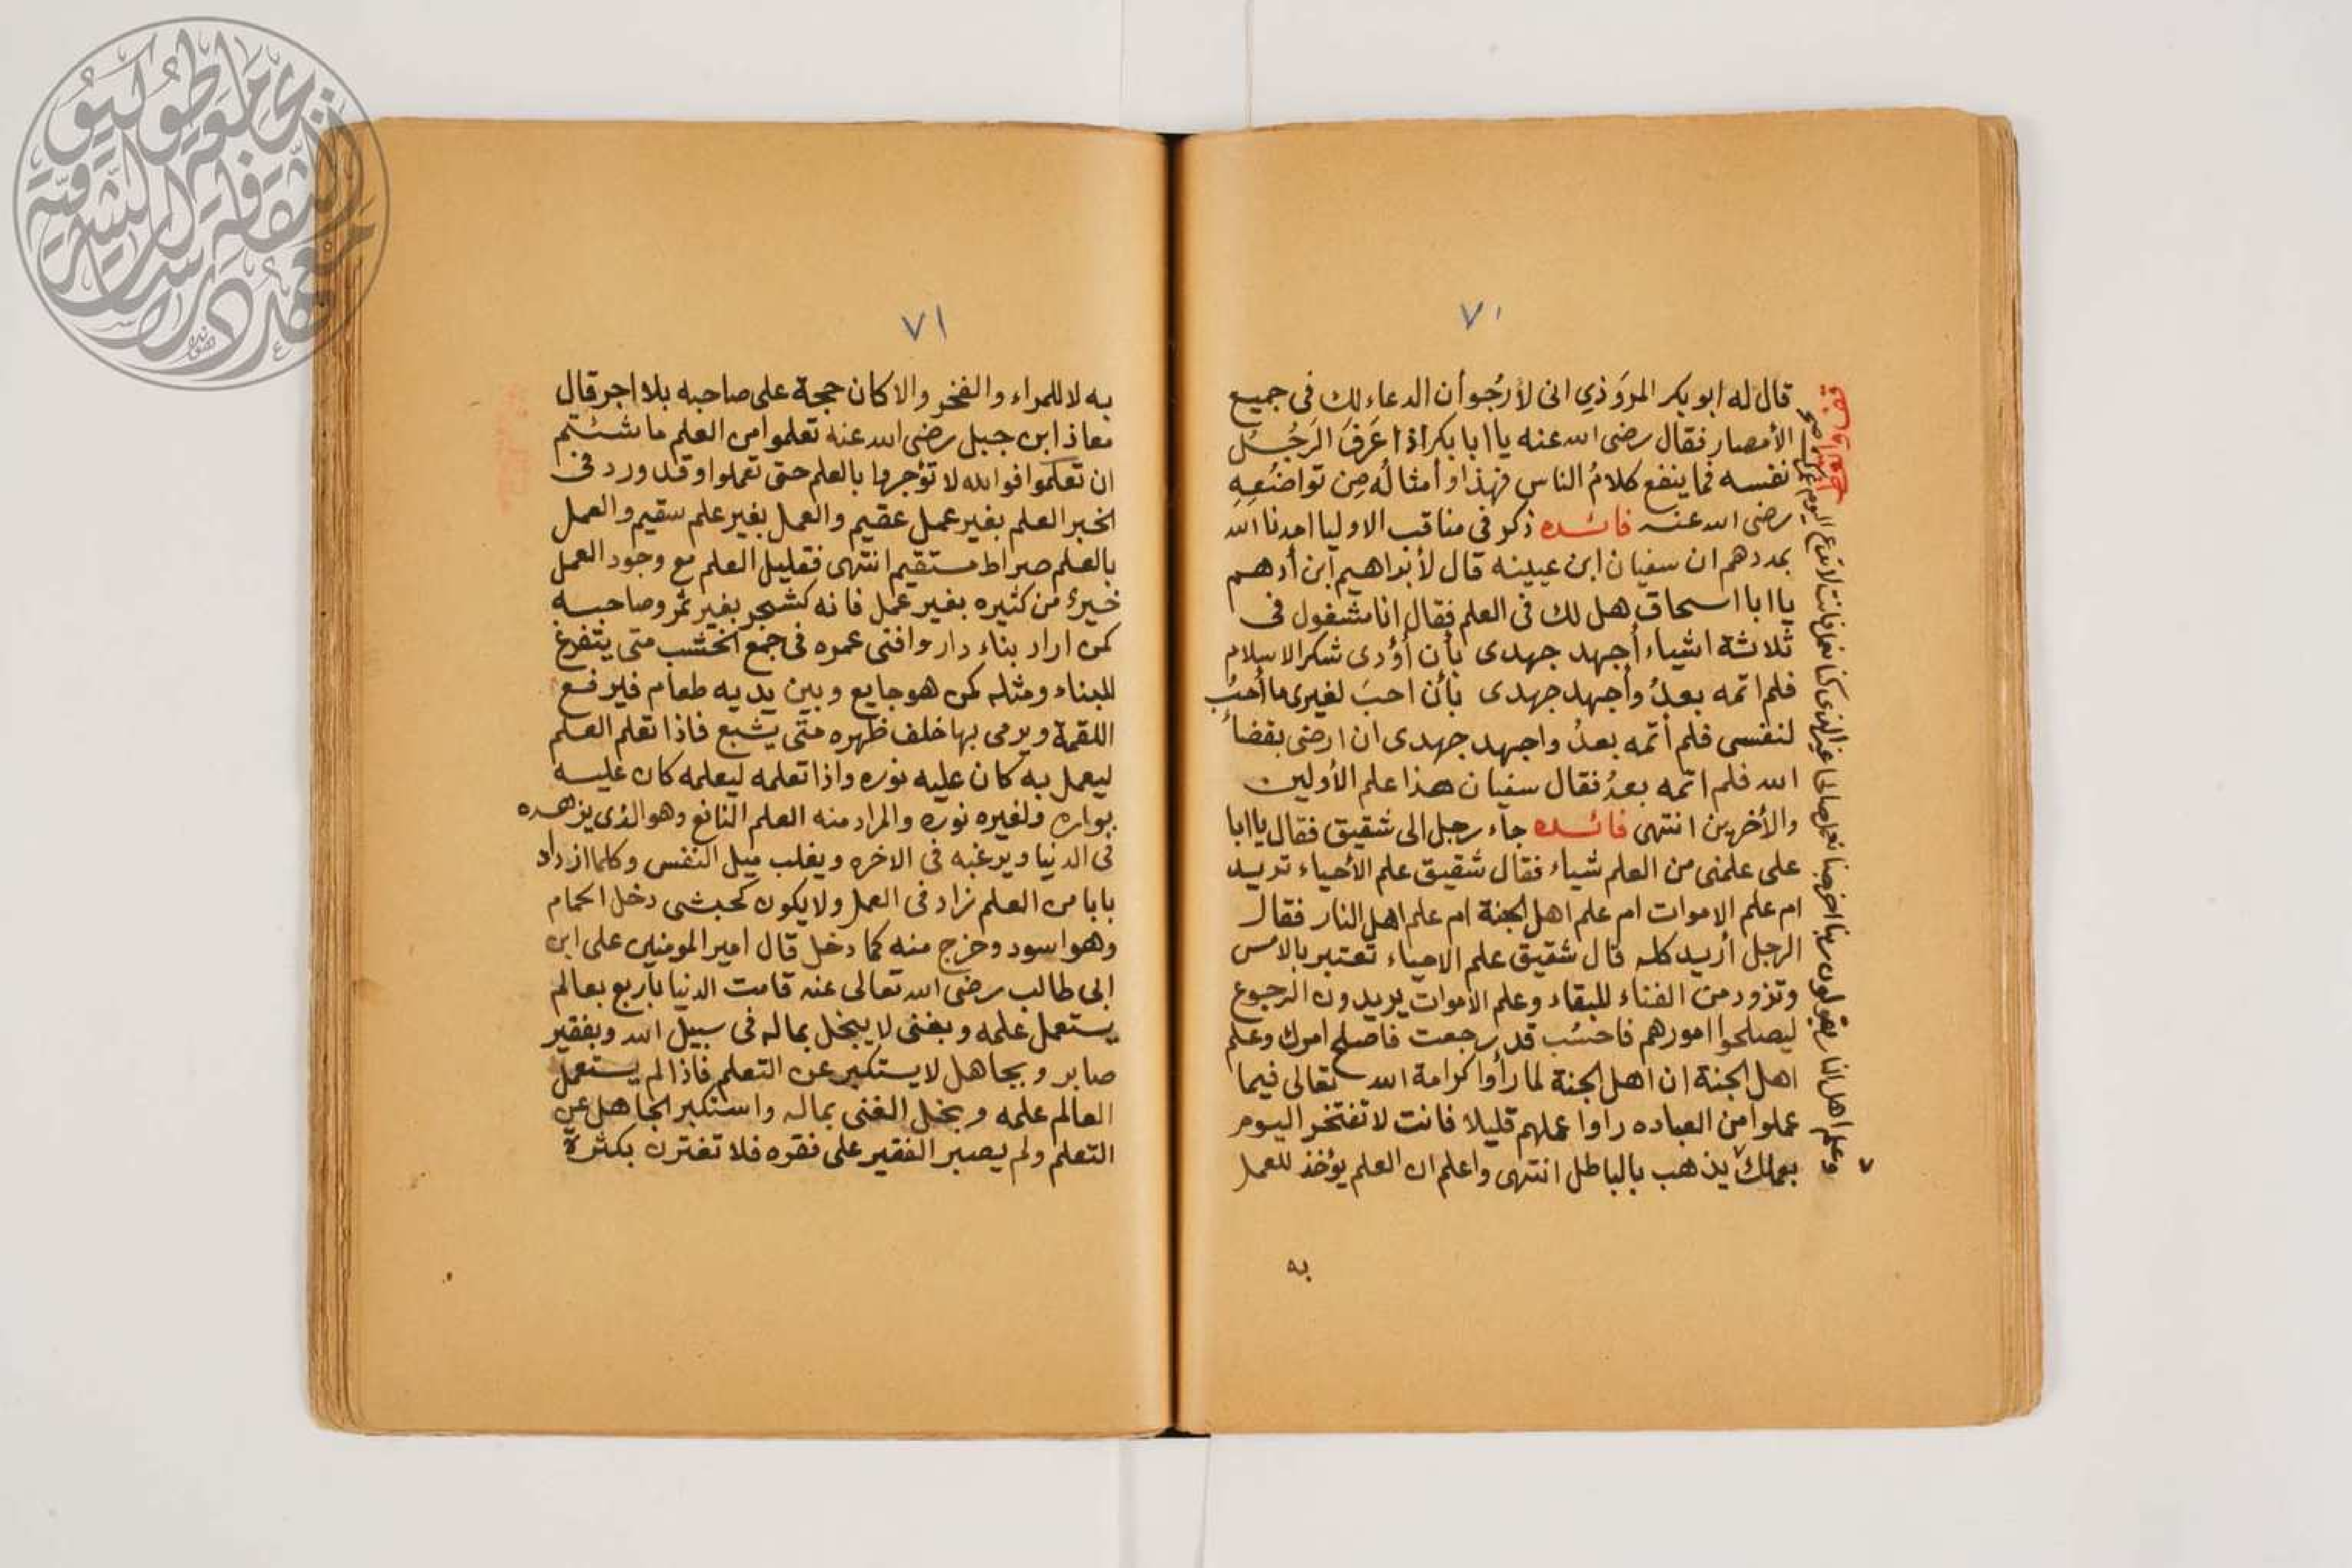 ٧٠
قال له ابو بكر المروَذي انى لأرجُوأن الدعاء لك فى جميع
الأمصار فقال رضى الله عنه يا ابا بكر اذا عَرَفَ الرَجُلُ
نفسه فما ينفع كلامُ الناس فهذا وأمثالُه مِن تواضعُهِ
رضى الله عنه فائده ذكر فى مناقب الاوليا امدنا الله
بمددهم ان سفيان ابن عيينه قال لأبراهيم ابن أدهم
يا ابا اسحاق هل لك فى العلم فقال انا مشغول فى
ثلاثة اشياء أجهد جهدى بأن أؤدى شكر الاسلام
فلم اتمه بعدُ وأجهد جهدى بأن احبَ لغيرى ما أُحبُ
لنفسى فلم أتمه بعدُ واجهد جهدى ان ارضى بقضاء
الله فلم اتمه بعدُ فقال سفيان هذا علم الأولين
والأخرين انتهى فائده جاء رجل الى شقيق فقال يا ابا
على علمنى من العلم شياء فقال شقيق علم الأحياء تريد
ام علم الاموات ام علم اهل الجنة ام علم اهل النار فقال
الرجل أريد كله قال شقيق علم الاحياء تعتبر بالامس
وتزود من الفناء للبقاء وعلم الاموات يريدون الرجوع
ليصلحوا امورهم فاحسُب قد رجعت فاصلح امرك وعلم
اهل الجنة ان اهل الجنة لما رأوا كرامة الله تعالى فيما
عملوا من العباده راوا عملهم قليلا فانت لا تفتخر اليوم
بعملك ٧ يذهب بالباطل انتهى واعلم ان العلم يؤخذ للعمل
٧ وعلم اهل النار يقولون ربنا اخرجنا نعمل صالحا غير الذى كنا نعمل فانت لا تدع اليوم عمرك
به
٧١
به لا للمراء والفخر والا كان حجة على صاحبه بلا اجر قال
معاذ ابن جبل رضى الله عنه تعلموا من العلم ما شئتم
ان تعلموا فوالله لا تؤجروا بالعلم حتى تعملوا وقد ورد فى
الخبر العلم بغير عمل عقيم والعمل بغير علم سقيم والعمل
بالعلم صراط مستقيم انتهى فقليل العلم مع وجود العمل
خيرٌ من كثيره بغير عمل فانه كشجر بغير ثمر وصاحبه
كمن اراد بناء دار وافنى عمره فى جمع الخشب متى يتفرغ
للبناء ومثله كمن هو جايع وبين يديه طعام فيرفع
اللقمة ويرمى بها خلف ظهره متى يشبع فاذا تعلم العلم
ليعمل به كان عليه نوره واذا تعلمه ليعلمه كان عليه
بواره ولغيره نوره والمراد منه العلم النافع وهو الذى يزهده
فى الدنيا ويرغبه فى الاخره ويغلب ميل النفس وكلما ازداد
بابا من العلم زاد فى العمل ولا يكون كحبشى دخل الحمام
وهو اسود وخرج منه كما دخل قال امير المومنين على ابن
ابى طالب رضى الله تعالى عنه قامت الدنيا بأربع بعالم
يستعمل علمه وبغنى لا يبخل بماله فى سبيل الله وبفقير
صابر وبجاهل لا يستكبر عن التعلم فاذا لم يستعمل
العالم علمه وبخل الغنى بماله واستكبر الجاهل عن
التعلم ولم يصبر الفقير على فقره فلا تغترن بكثرة